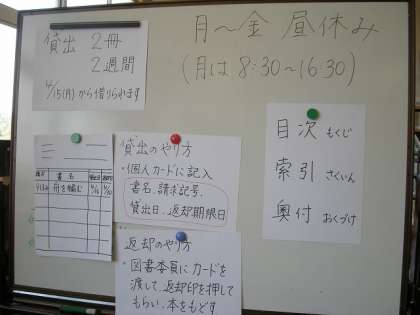 貸出 2冊
2週間
4/15(月)から借りられます
月～金 昼休み
(月は 8:30～16:30)
書名
舟を編む
貸出のやり方
・個人カードに記入
書名、請求記号、
貸出日、返却期限日
返却のやり方
・図書委員にカードを
渡して、返却印を押して
もらい、本をもどす
目次 もくじ
索引 さくいん
奥付 おくづけ